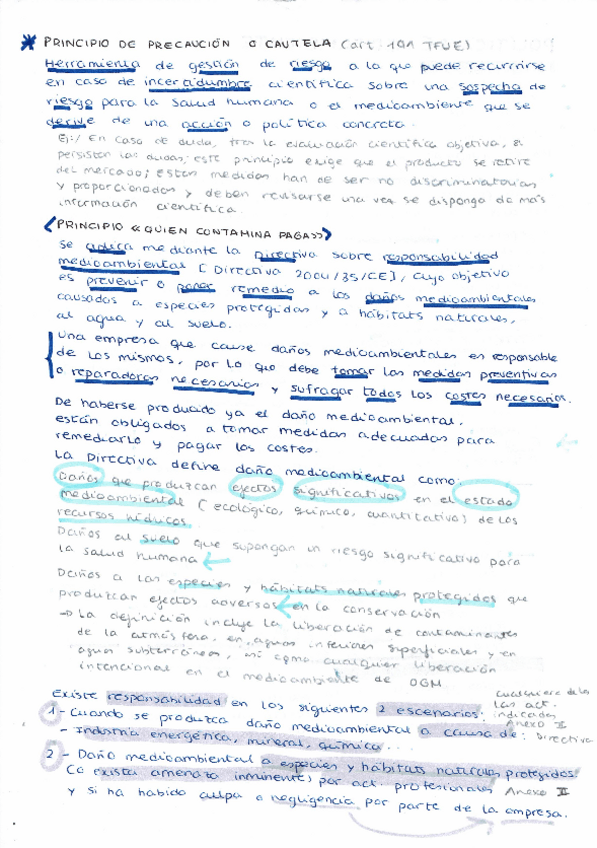 * PRINCIPIO DE PRECAUCIÓN O CAUTELA (art. 191 TFUE)
Herramienta de gestión de riesgo a la que puede recurrirse
en caso de incertidumbre científica sobre una sospecha de
riesgo para la salud humana o el medioambiente que se
derive de una acción o política concreta.
Ej:/ En caso de duda, tras la evaluación científica objetiva, si
persisten las dudas, este principio exige que el producto se retire
del mercado; estas medidas han de ser no discriminatorias
y proporcionadas y deben revisarse una vez se disponga de más
información científica.
PRINCIPIO «QUIEN CONTAMINA PAGA»
Se aplica mediante la Directiva sobre responsabilidad
medioambiental [Directiva 2004/35/CE], cuyo objetivo
es prevenir o poner remedio a los daños medioambientales
causados a especies protegidas y a hábitats naturales,
al agua y al suelo.
Una empresa que cause daños medioambientales es responsable
de los mismos, por lo que debe tomar las medidas preventivas
o reparadoras necesarias y sufragar todos los costes necesarios.
De haberse producido ya el daño medioambiental,
están obligados a tomar medidas adecuadas para
remediarlo y pagar los costes.
La Directiva define daño medioambiental como:
Daños que produzcan efectos significativos en el estado
medioambiental (ecológico, químico, cuantitativo) de los
recursos hídricos.
Daños al suelo que supongan un riesgo significativo para
la salud humana ←
Daños a las especies y hábitats naturales protegidos que
produzcan efectos adversos ← en la conservación
→ La definición incluye la liberación de contaminantes
de la atmósfera, en aguas interiores superficiales y en
aguas subterráneas, así como cualquier liberación
intencional en el medioambiente de OGM
Existe responsabilidad en los siguientes 2 escenarios:
1 - Cuando se produzca daño medioambiental a causa de: cualquiera de las act. indicadas Anexo Directiva
- Industria energética, mineral, química...
2 - Daño medioambiental a especies y hábitats naturales protegidos
(o exista amenaza inminente) por act. profesionales Anexo
y si ha habido culpa o negligencia por parte de la empresa.